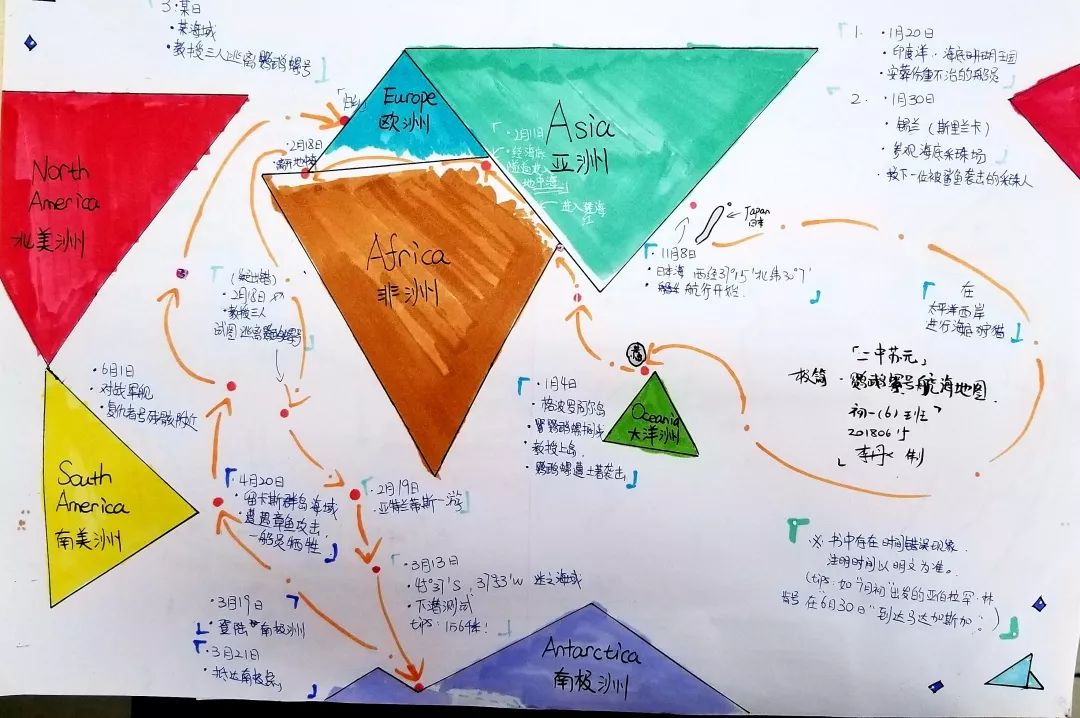 3.某日
·某海域
·教授三人逃离鹦鹉螺号
1. ·1月20日
·印度洋·海底珊瑚王国
·安葬伤重不治的船员
2. ·1月30日
·锡兰（斯里兰卡）
·参观海底采珠场
·救下一位被鲨鱼袭击的采珠人
North
America
北美洲
Europe
欧洲
Asia
亚洲
·2月11日
·经海底
隧道进入
地中海
进入红海
·2月18日
离开地中海
Africa
非洲
Japan
日本
·11月8日
·日本海 西经37°15'北纬30°7'
航行开始.
在
太平洋西岸
进行海底狩猎
（纪出错）
·2月18日
·教授三人
试图逃离鹦鹉螺号
·6月1日
·对战军舰
·复仇者号残骸附近
·1月4日
·格波罗阿尔岛
·鹦鹉螺搁浅
·教授上岛
·鹦鹉螺遭土著袭击
Oceania
大洋洲
「二中苏元」
鹦鹉螺号航海地图
初一（6）班
20180615
李丹 制
South
America
南美洲
·4月20日
·留卡斯群岛海域
·遭遇章鱼攻击，
一船员牺牲
·2月19日
·亚特兰蒂斯一游
·3月13日
·45°37'S，37°53'W
·下潜测试
tips：
·3月19日
·登陆"南极洲
·3月21日
·抵达南极点
Antarctica
南极洲
※ 书中存在时间错误现象
注明时间以明文为准。
（tips：如"7月初"出发的亚伯拉罕·林
肯号在"6月30日"到达马达加斯加。）